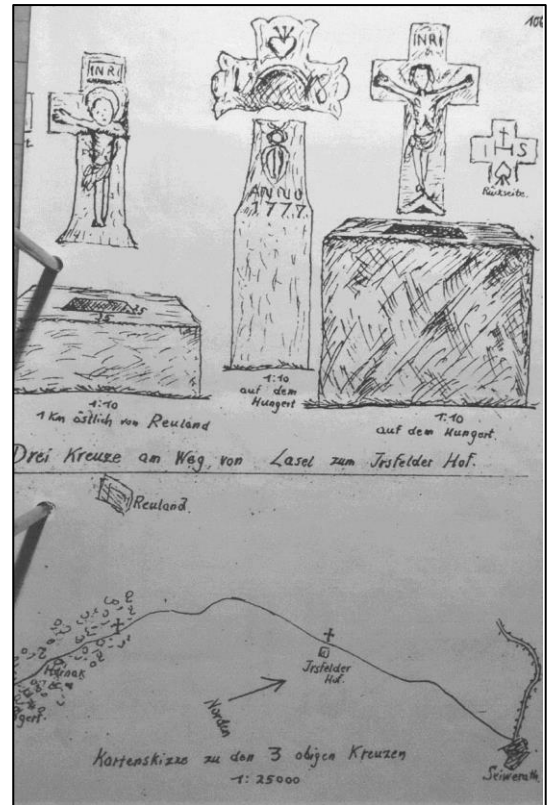 106
INRI
INRI
I H S
Rückseite.
ANNO
1777
25
35
1:10
1 Km östlich von Reuland
1:10
auf dem
Hungert
1:10
auf dem Hungert.
Drei Kreuze am Weg, von Lasel zum Irsfelder Hof.
Reuland.
Irsfelder
Hof.
Norden
Kartenskizze zu den 3 obigen Kreuzen
1:25000
Seiwerath